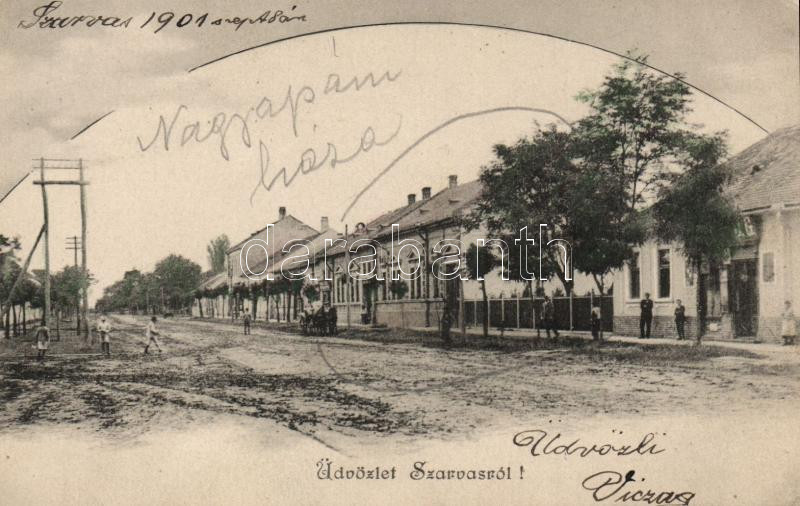 Szarvas 1901 szept
Nagyapám
háza
darabanth
Üdvözlet Szarvasról !
Üdvözli